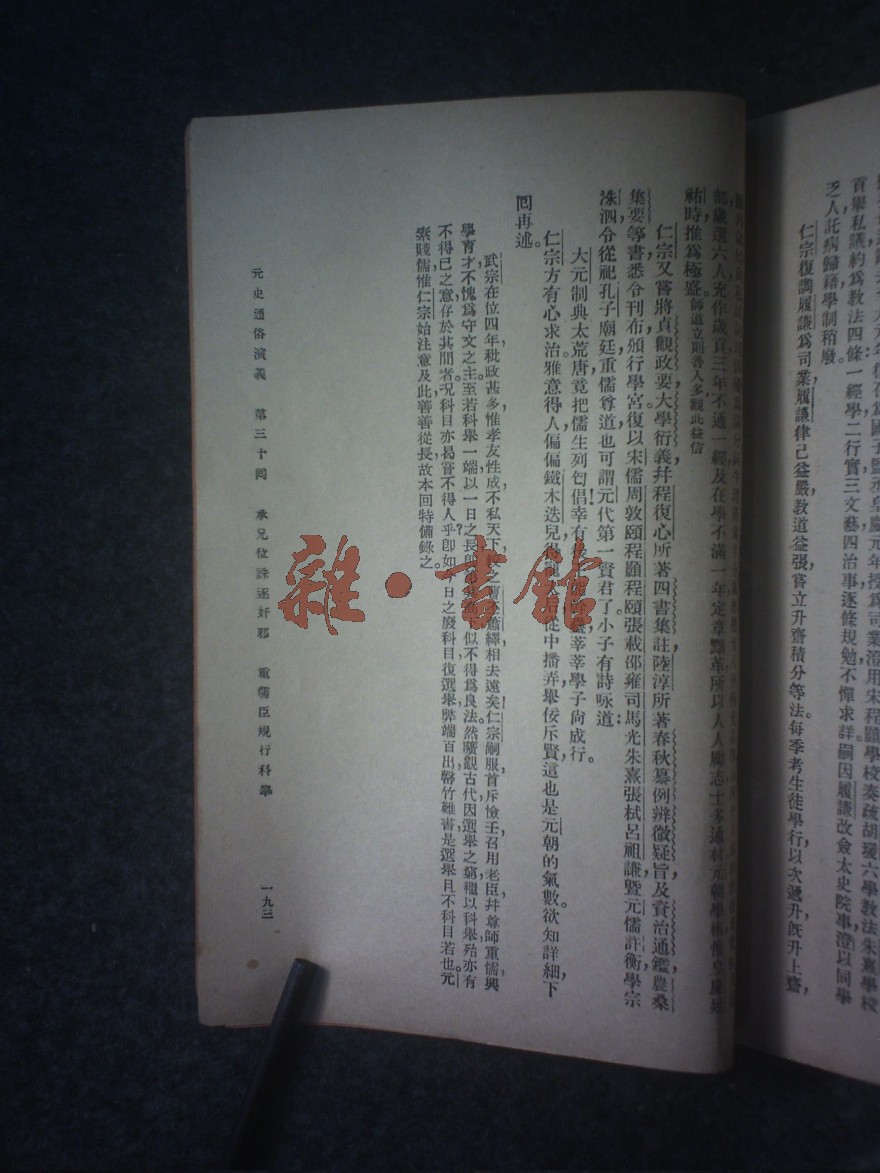 貢舉私議約爲教法四條一經學二行實三文藝四治事逐條規勉不憚求詳嗣因履謙改僉太史院事澄以同學
乏人託病歸籍學制稍廢。
仁宗復調履謙爲司業履謙律己益嚴教道益張嘗立升齋積分等法每季考生徒學行以次遞升既升上齋
部歲選六人充作歲貢三年不通一經及在學不滿一年定章黜革所以人人勵志士多通材元朝學術惟皇慶延
祐時推爲極盛師道立則善人多觀此益信
仁宗又嘗將貞觀政要大學衍義幷程復心所著四書集註陸淳所著春秋纂例辨微疑旨及資治通鑑農桑
集要等書悉令刊布頒行學宮復以宋儒周敦頤程顥程頤張載邵雍司馬光朱熹張栻呂祖謙暨元儒許衡學宗
洙泗令從祀孔子廟廷重儒尊道也可謂元代第一賢君了小子有詩咏道：
大元制典太荒唐竟把儒生列匄倡！幸有後 莘莘學子尚成行。
仁宗方有心求治雅意得人偏偏鐵木迭兒 從中播弄舉佞斥賢這也是元朝的氣數欲知詳細下
回再述。
武宗在位四年秕政甚多惟孝友性成不私天下 蕭繹相去遠矣！仁宗嗣服首斥憸壬召用老臣幷尊師重儒興
學育才不愧爲守文之主至若科舉一端以一日之長 似不得爲良法。然曠觀古代因選舉之窮繼以科舉殆亦有
不得已之意存於其間者況科目亦曷嘗不得人乎？卽如今日之廢科目復選舉弊端百出罄竹難書是選舉且不科目若也。元
素賤儒惟仁宗始注意及此善善從長故本回特備錄之。
元史通俗演義 第三十回 承兄位誅逐奸邪 重儒臣規行科舉 一九三
雜·書館